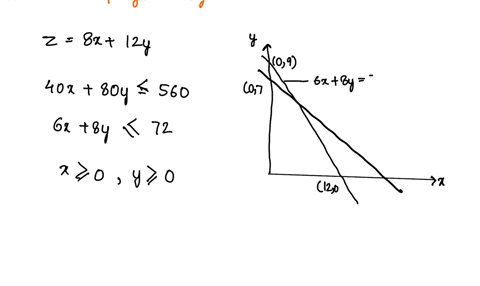 z = 8x + 12y
40x + 80y ≤ 560
6x + 8y ≤ 72
x ≥ 0 , y ≥ 0
y
(0,9)
6x + 8y =
(0,7
(12,0
x